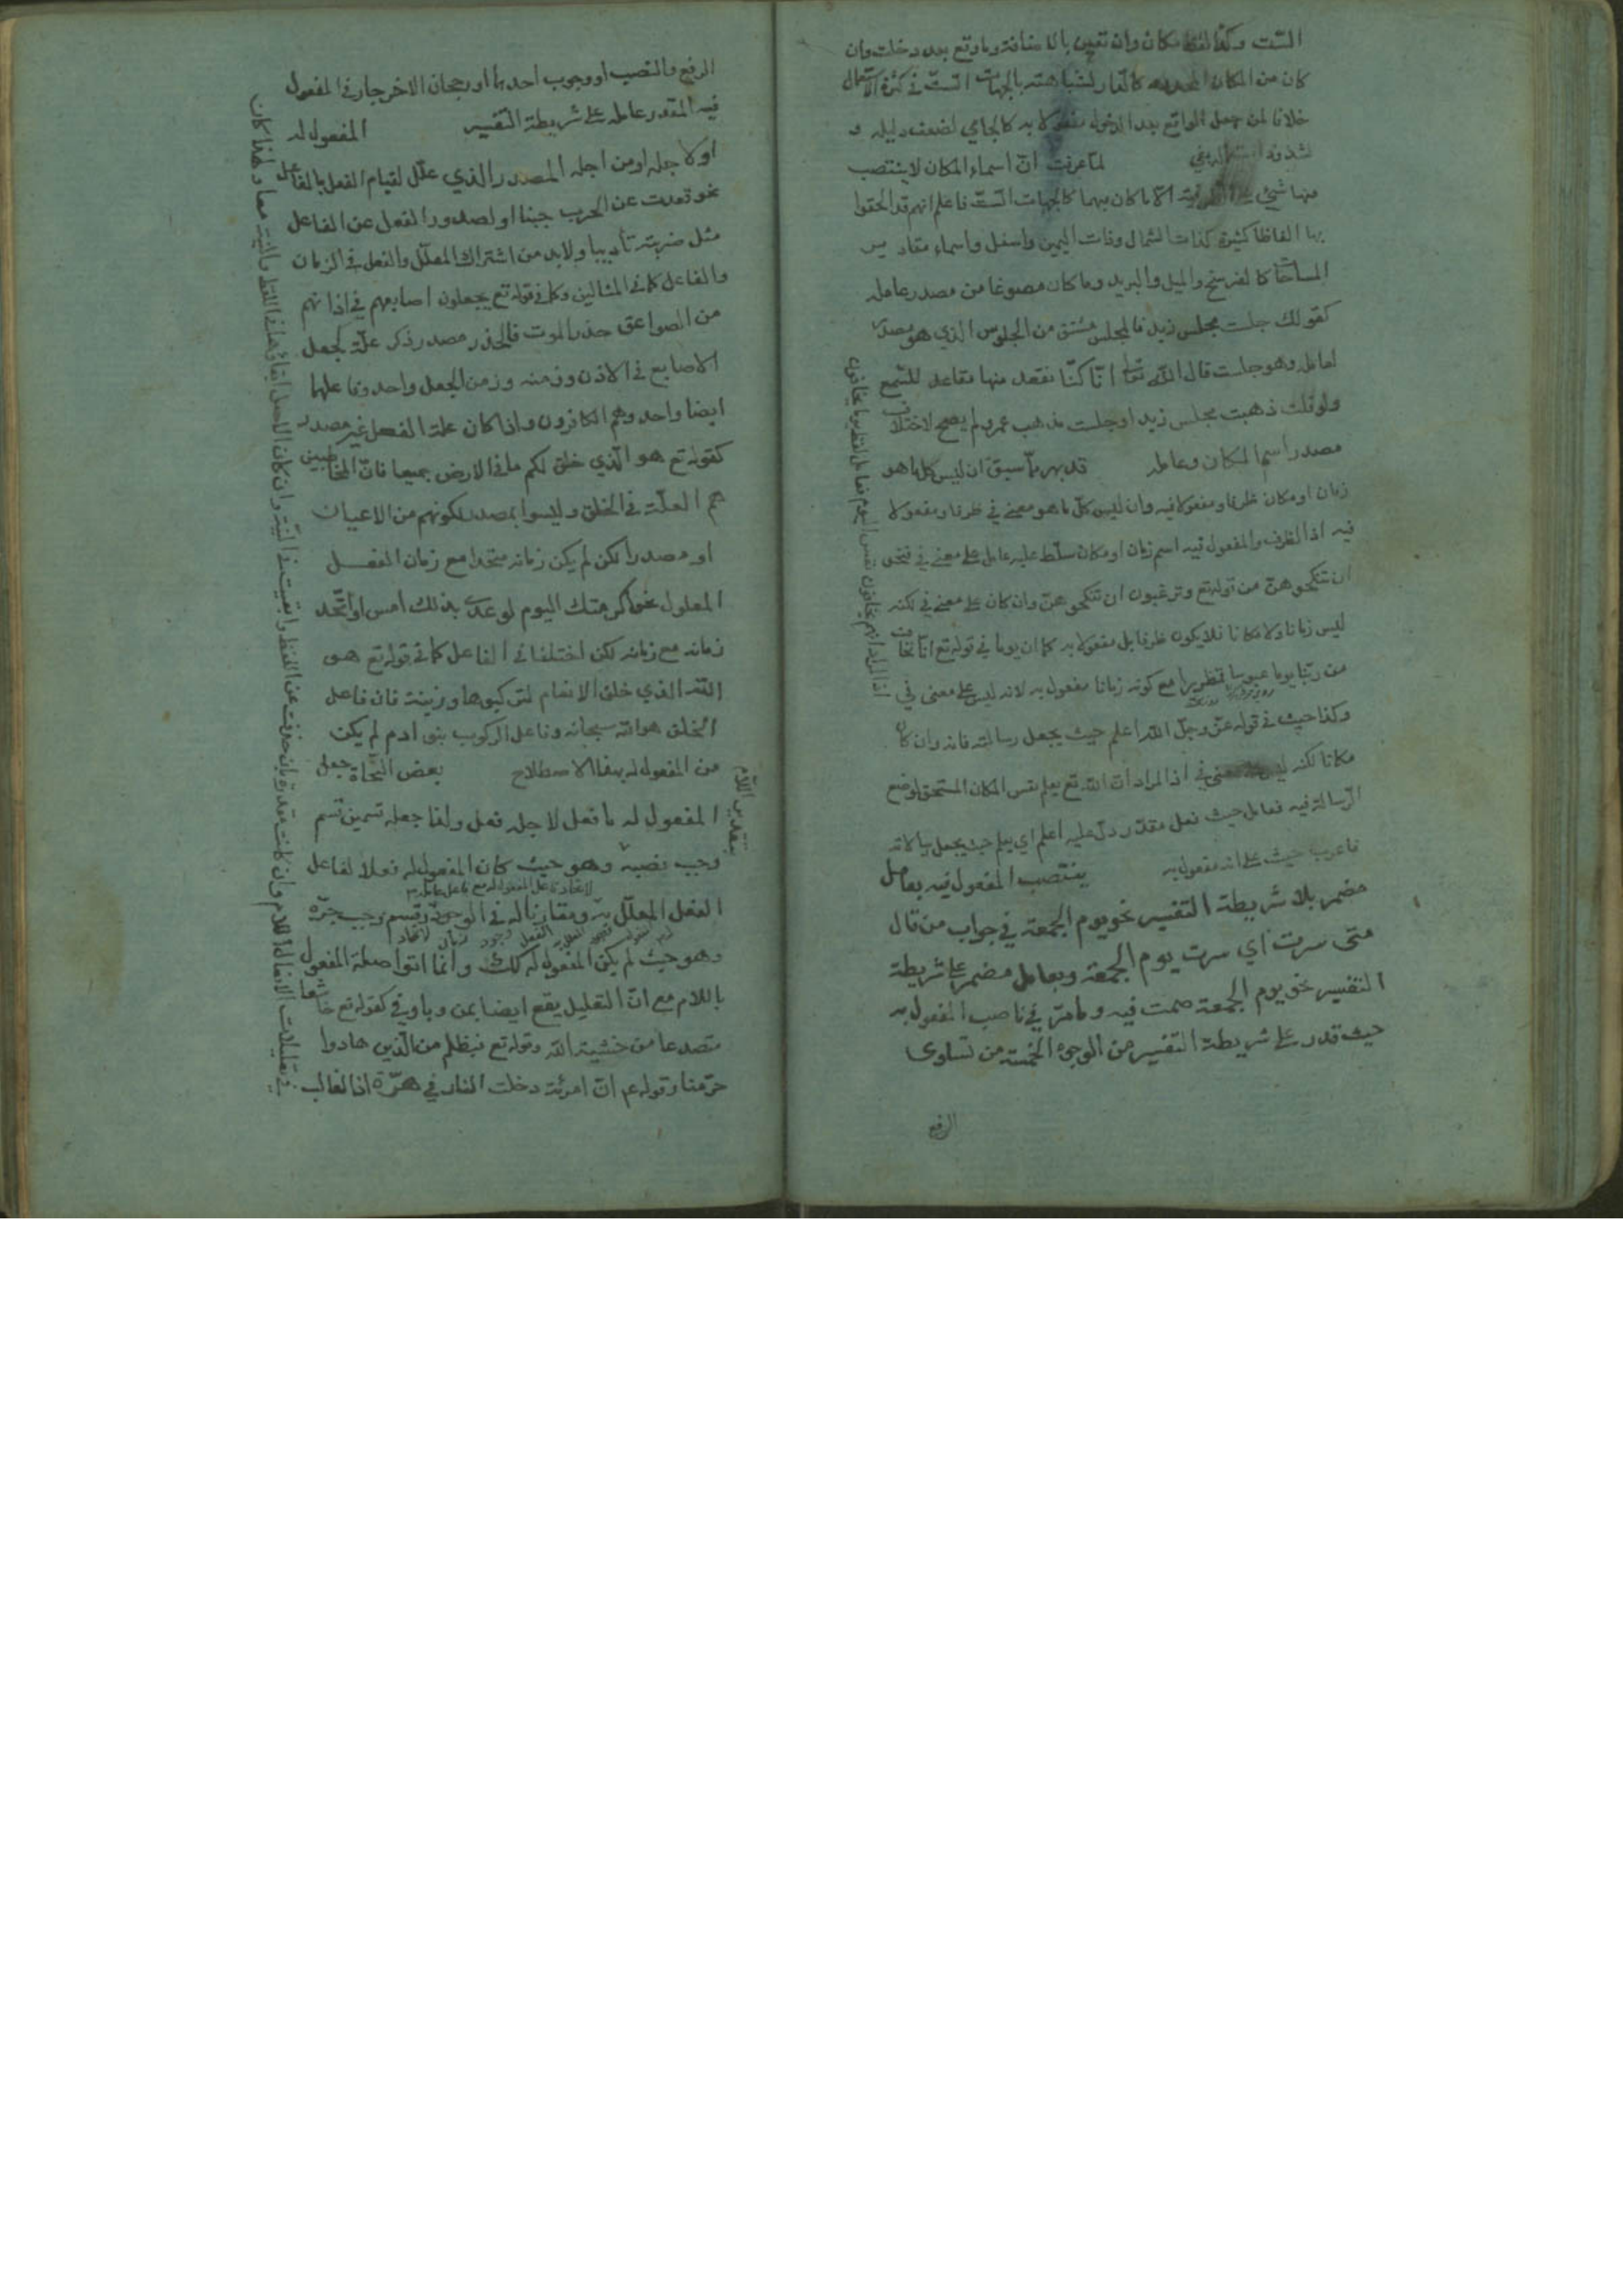 الست وكذا لفظ مكان وان تعين بالاضافة وما وقع بعد دخلت وان
كان من المكان المحدود كالدار لشباهته بالجهات الست في كثرة الاستعمال
خلافا لمن جعل الواقع بعد الدخول مفعولا به كالجامي لضعف دليله و
لما عرفت ان اسماء المكان لا ينتصب
منها شيء على الظرفية الا ما كان مبهما كالجهات الست فاعلم انهم قد الحقوا
بها الفاظا كثيرة كذات الشمال وذات اليمين واسفل واسماء مقادير
المساحة كالفرسخ والميل والبريد وما كان مصوغا من مصدر عامله
كقولك جلست مجلس زيد فالمجلس مشتق من الجلوس الذي هو مصدر
لعامله وهو جلست قال الله تعا انا كنا نقعد منها مقاعد للسمع
ولو قلت ذهبت مجلس زيد او جلست مذهب عمرو لم يصح لاختلاف
مصدر اسم المكان وعامله قد بهر مما سبق ان ليس كل ما هو
زمان او مكان ظرفا ومفعولا فيه وان ليس كل ما هو بمعنى في ظرفا ومفعولا
فيه اذ الظرف والمفعول فيه اسم زمان او مكان سلط عليه عامل على معنى في فنحو
ان تنكحوهن من قوله تع وترغبون ان تنكحوهن وان كان على معنى في لكنه
ليس زمانا ولا مكانا فلا يكون ظرفا بل مفعولا به كما ان يوما في قوله تع انا نخاف
من ربنا يوما عبوسا قمطريرا مع كونه زمانا مفعول به لانه ليس على معنى في
وكذا حيث في قوله عز وجل الله اعلم حيث يجعل رسالته فانه وان كان
مكانا لكنه ليس على معنى في اذ المراد ان الله تع يعلم نفس المكان المستحق لوضع
الرسالة فيه فعامل حيث فعل مقدر دل عليه اعلم اي يعلم حيث يجعل رسالاته
فاعرب حيث على انه مفعول به ينتصب المفعول فيه بعامل
مضمر بلا شريطة التفسير نحو يوم الجمعة في جواب من قال
متى سرت اي سرت يوم الجمعة وبعامل مضمر على شريطة
التفسير نحو يوم الجمعة صمت فيه وما مر في ناصب المفعول به
حيث قدر على شريطة التفسير من الوجوه الخمسة من تساوى
الرفع
اذ المراد انهم يخافون نفس اليوم فعامل لفظ يوما يخافون
الرفع والنصب او وجوب احدهما او رجحان الاخر جار في المفعول
فيه المقدر عامله على شريطة التفسير المفعول له
او لاجله او من اجله المصدر الذي علل لقيام الفعل بالفاعل
نحو قعدت عن الحرب جبنا او لصدور الفعل عن الفاعل
مثل ضربته تأديبا ولا بد من اشتراك المعلل والفعل في الزمان
والفاعل كما في المثالين وكما في قوله تع يجعلون اصابعهم في اذانهم
من الصواعق حذر الموت فالحذر مصدر ذكر علة لجعل
الاصابع في الاذن وزمنه وزمن الجعل واحد وفاعلهما
ايضا واحد وهم الكافرون واذا كان علة الفعل غير مصدر
كقوله تع هو الذي خلق لكم ما في الارض جميعا فان المخاطبين
هم العلة في الخلق وليسوا بمصدر لكونهم من الاعيان
او مصدرا لكن لم يكن زمانه متحدا مع زمان الفعل
المعلول نحو اكرمتك اليوم لوعدي بذلك امس او اتحد
زمانه مع زمانه لكن اختلفا في الفاعل كما في قوله تع هو
الله الذي خلق الانعام لتركبوها وزينة فان فاعل
الخلق هو الله سبحانه وفاعل الركوب بنو ادم لم يكن
من المفعول له بهذا الاصطلاح بعض النحاة جعل
المفعول له ما فعل لاجله فعل ولذا جعله قسمين قسم
وجب نصبه وهو حيث كان المفعول له فعلا لفاعل
لاتحاد فاعل المفعول له مع فاعل عامله
الفعل المعلل به ومقارنا له في الوجود وقسم وجب جره
وهو حيث لم يكن المفعول له كذلك وانما اتوا صلة المفعول
باللام مع ان التعليل يقع ايضا بمن وبا وفي كقوله تع خاشعا
متصدعا من خشية الله وقوله تع فبظلم من الذين هادوا
حرمنا وقوله عم ان امرئة دخلت النار في هرة اذ الغالب
بتقدير اللام
في تعليلات الافعال اللام